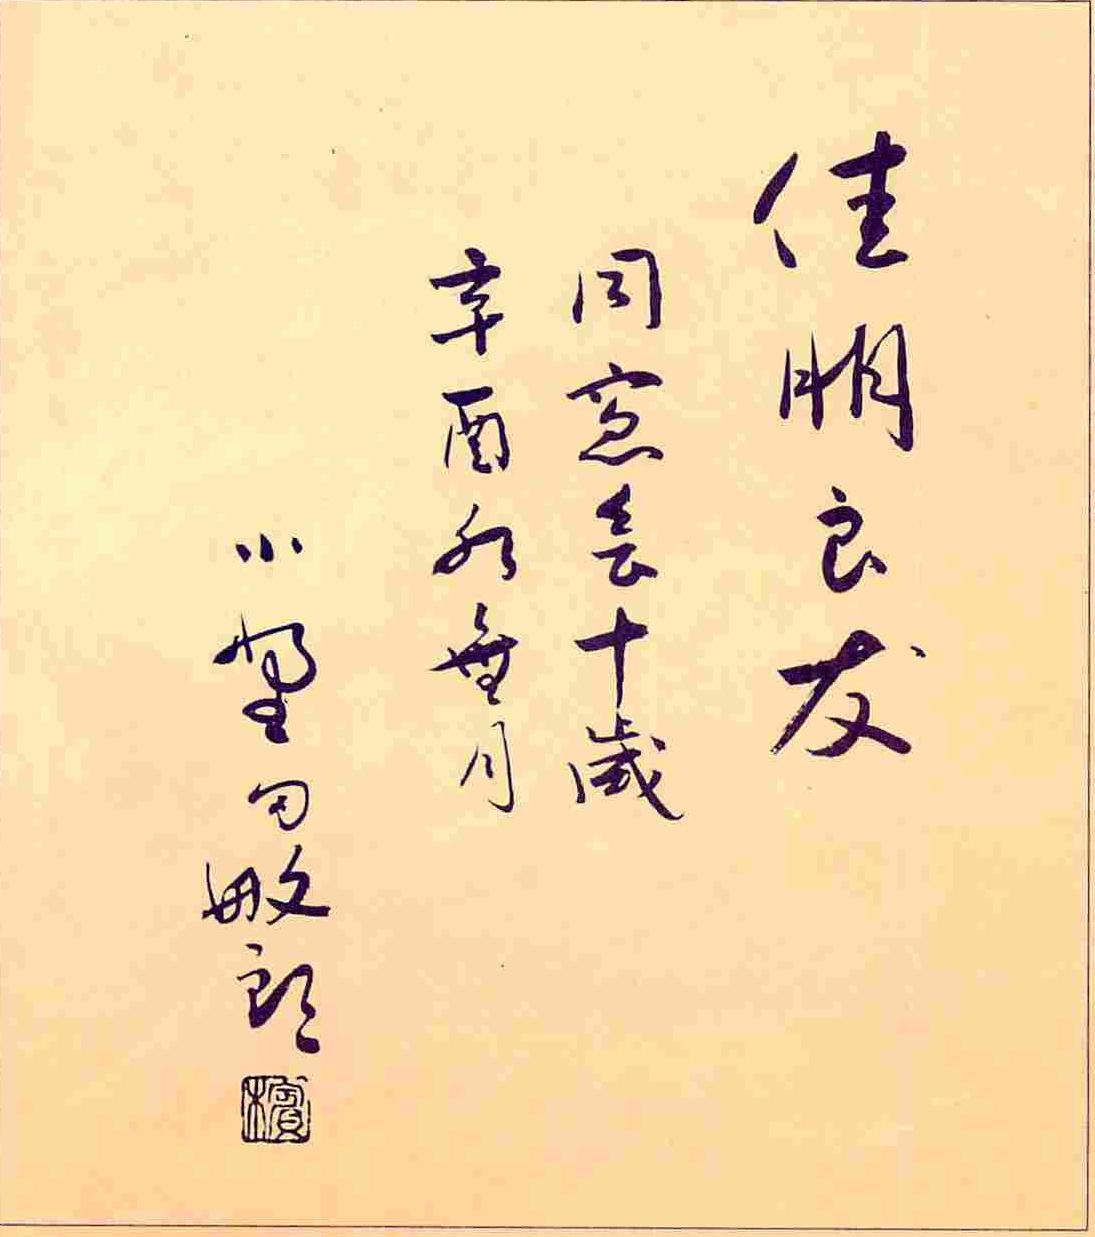 佳朋良友
同窓会十歳
辛酉水無月
小野田敏郎